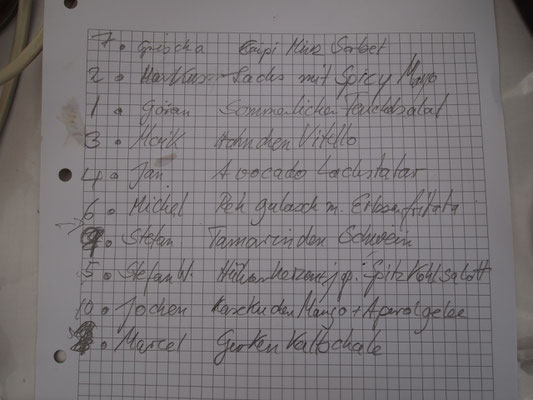 7. Grischa Kaipi Minz Sorbet
2. Markus Lachs mit Spicy Mayo
1. Göran Sommerlicher Fenchelsalat
3. Maik Hähnchen Vitello
4. Jan Avocado Lachstatar
6. Michel Reh gulasch m. Erbsenfrittata
9. Stefan Tamarinden Schwein
5. Stefan W. Hühnerherzen Spitzkohlsalat
10. Jochen Käsekuchen Mango + Aperolgelee
Marcel Gurken Kaltschale